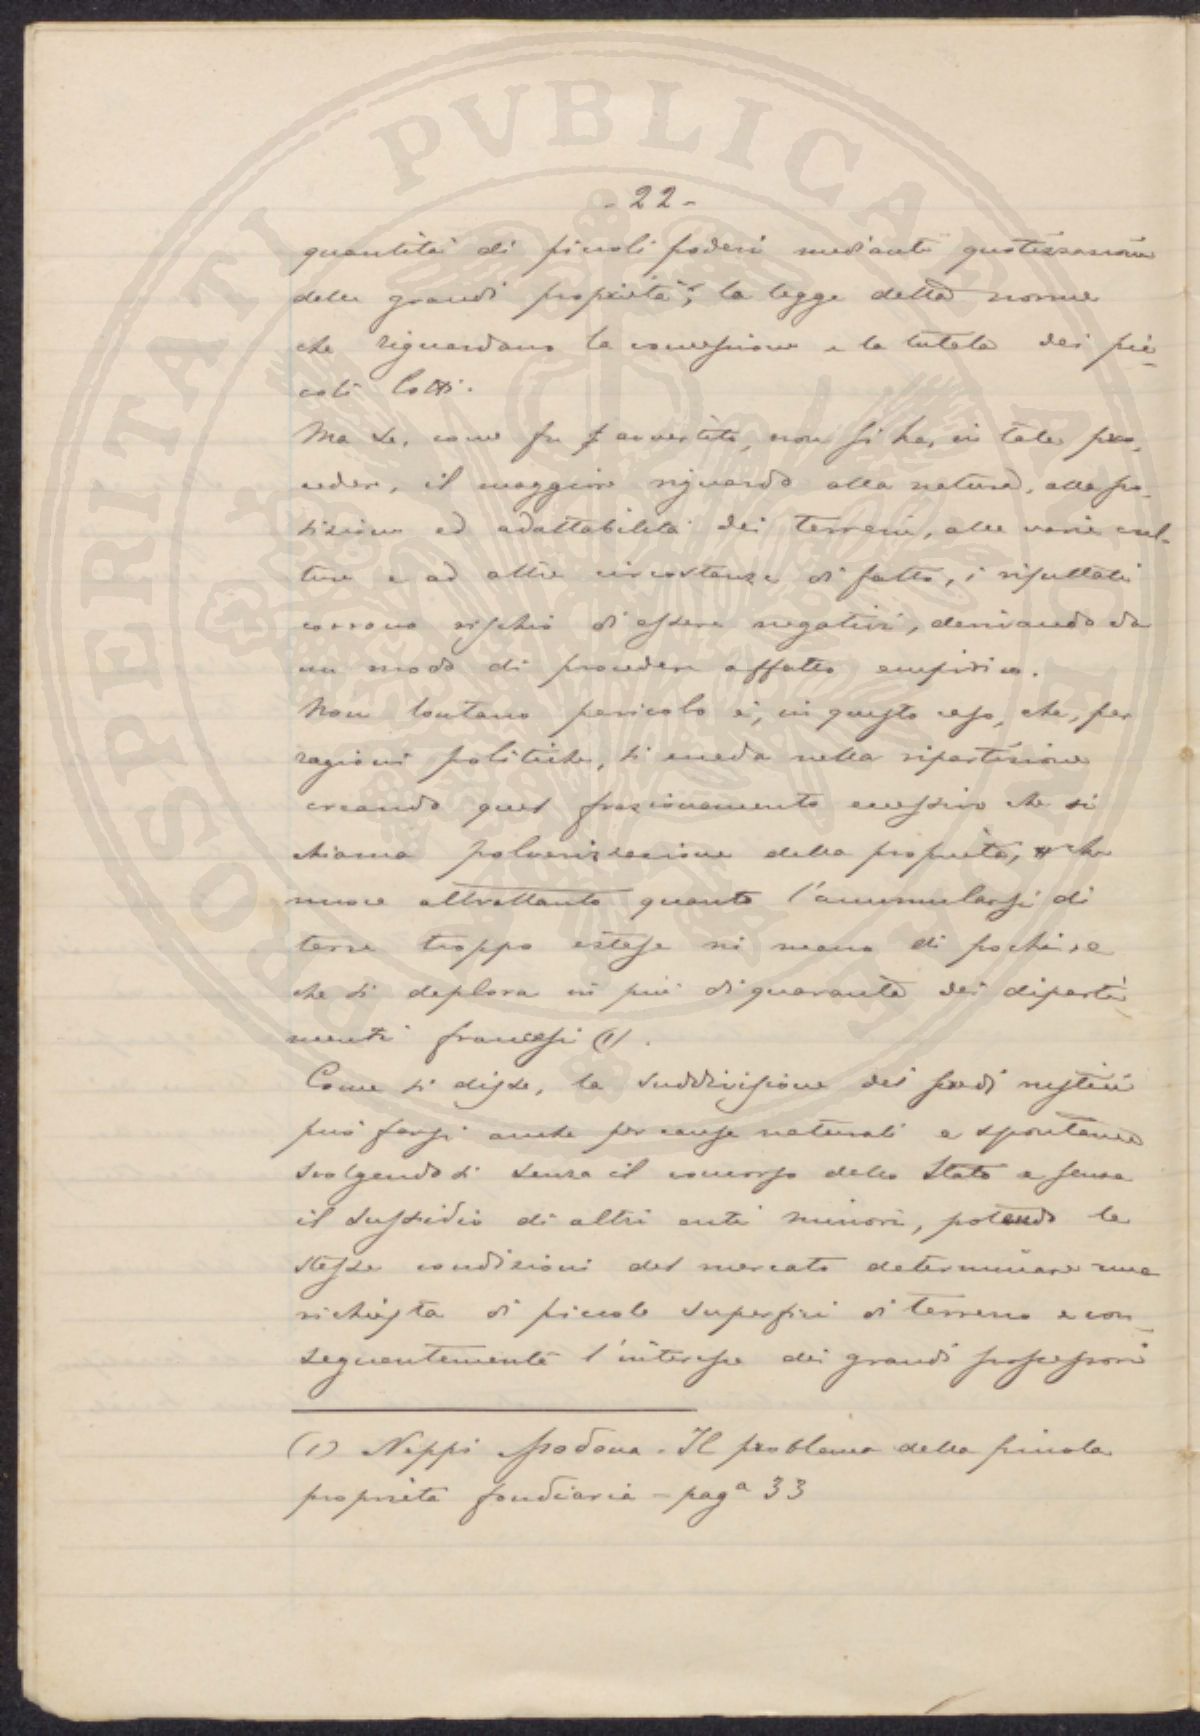 PROSPERITATI PVBLICAE AVGENDAE
- 22 -
quantità di piccoli poderi mediante quotizzazione
delle grandi proprietà; la legge detta norme
che riguardano la concessione e la tutela dei pic-
coli lotti.
Ma se, come fu avvertito, non si ha, in tale pro-
cedere, il maggiore riguardo alla natura, alla po-
sizione ed adattabilità dei terreni, alle varie cul-
ture e ad altre circostanze di fatto, i risultati
corrono rischio di essere negativi, derivando da
un modo di procedere affatto empirico.
Non lontano pericolo è, in questo caso, che, per
ragioni politiche, si ecceda nella ripartizione
creando quel frazionamento eccessivo che si
chiama polverizzazione della proprietà, che
nuoce altrettanto quanto l'accumularsi di
terre troppo estese in mano di pochi, e
che si deplora in più di quaranta dei diparti-
menti francesi (1).
Come si disse, la suddivisione dei fondi rustici
può farsi anche per cause naturali e spontanee
svolgendosi senza il concorso dello Stato e senza
il sussidio di altri enti minori, potendo le
stesse condizioni del mercato determinare una
richiesta di piccole superfici di terreno e con-
seguentemente l'interesse dei grandi possessori
(1) Neppi Modona - Il problema della piccola
proprietà fondiaria - pagª 33